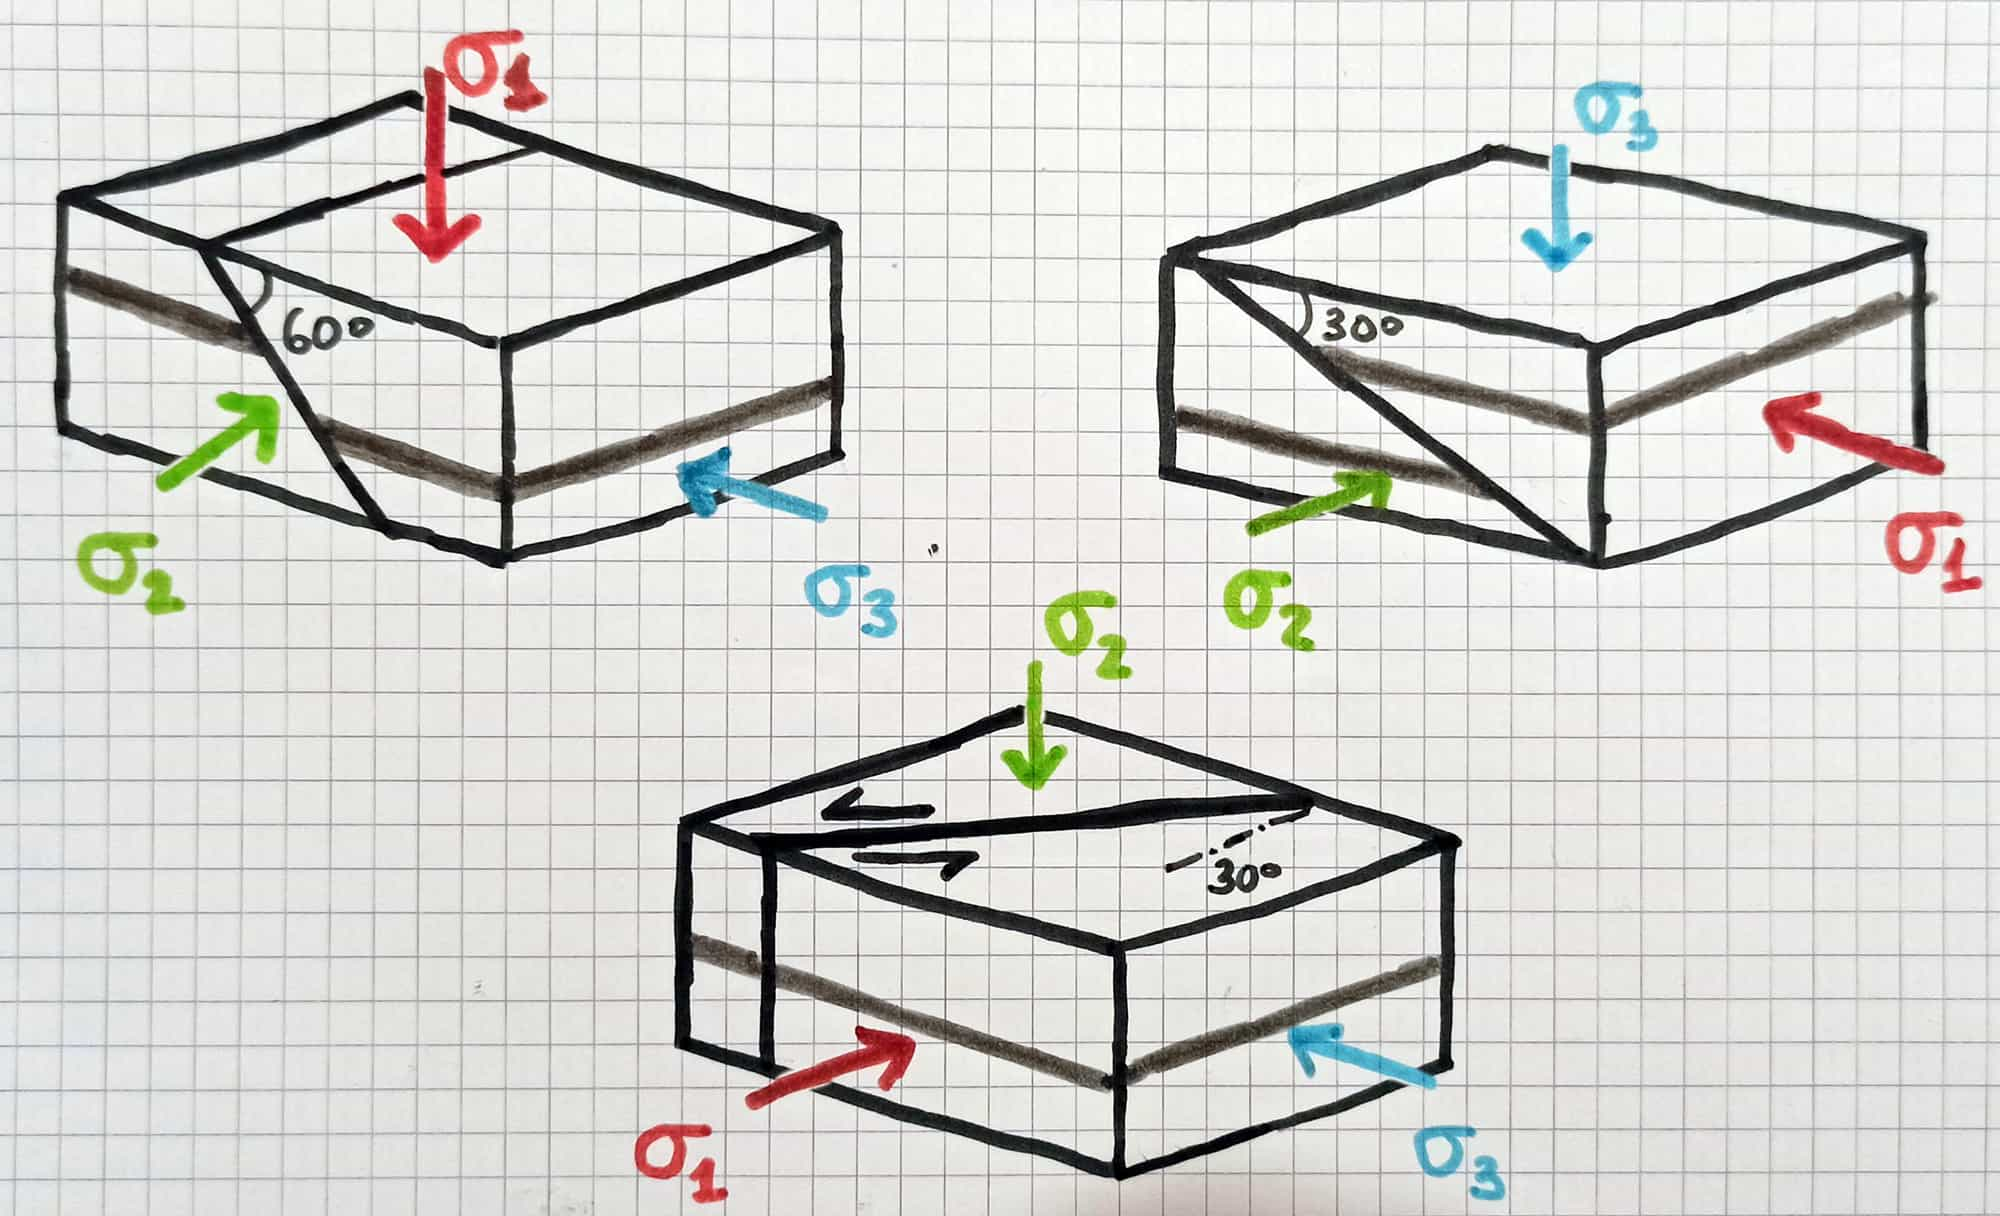 σ1
60°
σ2
σ3
σ3
30°
σ2
σ1
σ2
30°
σ1
σ3